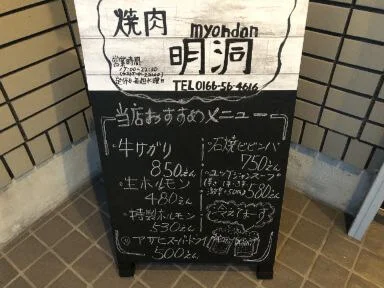 焼肉
myondon
明洞
営業時間
17:00~22:30
定休日 毎週水曜日
TEL 0166-56-4616
当店おすすめメニュー
・牛サガリ
850えん
・生ホルモン
480えん
・特製ホルモン
530えん
アサヒスーパードライ
500えん
・石焼ビビンバ
750えん
580えん
冷えてまーす